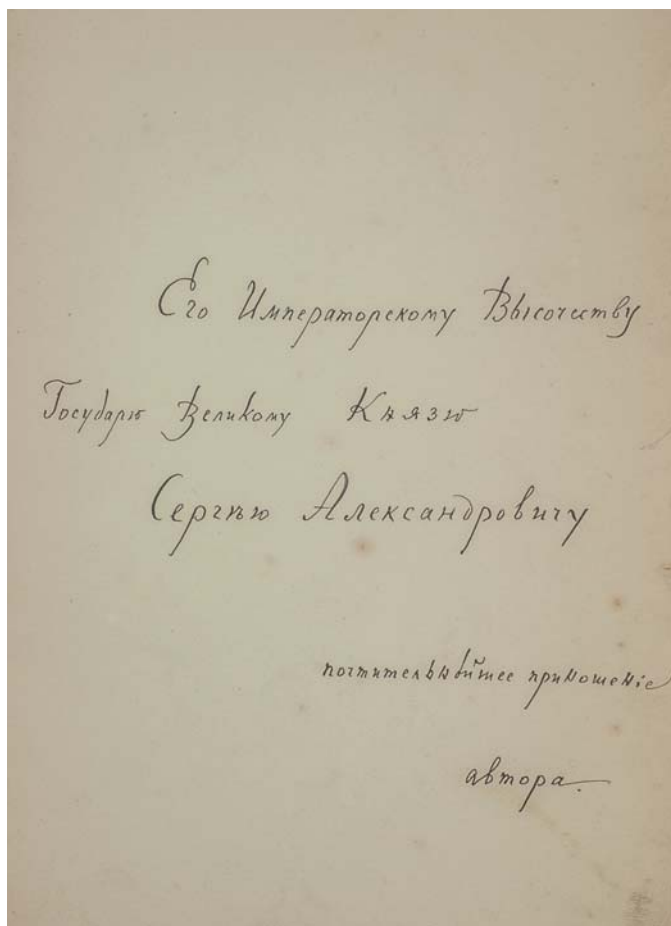 Его Императорскому Высочеству
Государю Великому Князю
Сергѣю Александровичу
почтительнѣйшее приношенiе
автора.